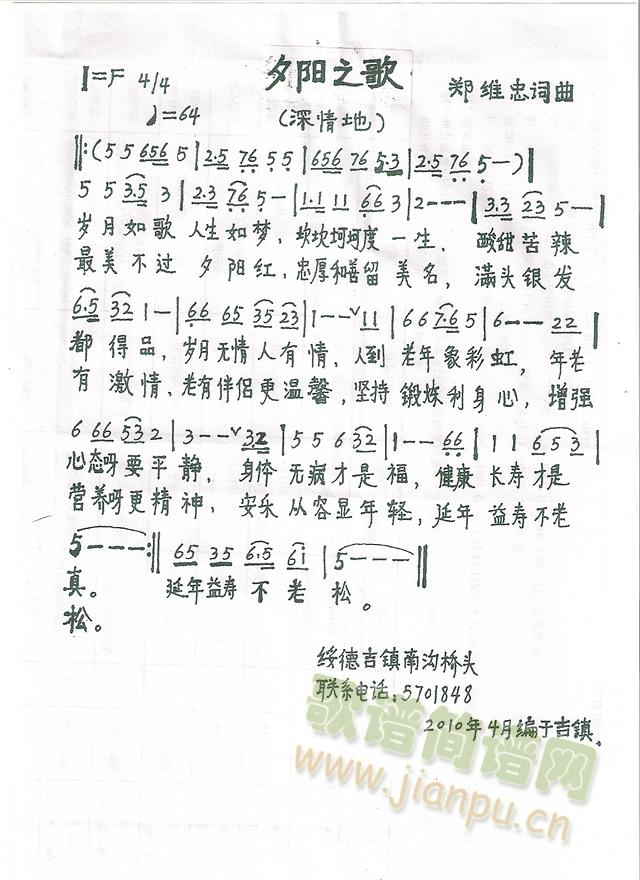 夕阳之歌
1=F 4/4
♩=64
(深情地)
郑维忠词曲
‖:(5 5 656 5 | 2·5 76 5 5 | 656 76 5·3 | 2·5 76 5 —)|
5 5 3·5 3 | 2·3 76 5 — | 1·1 11 66 3 | 2 — — — | 3·3 23 5 — |
岁月如歌 人生如梦，坎坎坷坷度一生、 酸甜苦辣
最美不过 夕阳红，忠厚和善留美名，满头银发
6·5 32 1 — | 66 65 35 23 | 1 — — ∨ 11 | 66 7·6 5 | 6 — — 22 |
都得品，岁月无情人有情，人到老年象彩虹，年老
有激情，老有伴侣更温馨，坚持锻炼利身心，增强
6 66 53 2 | 3 — — ∨ 32 | 5 5 6 32 | 1 — — 66 | 1 1 6 5 3 |
心态呀要平静，身体无病才是福，健康长寿才是
营养呀更精神，安乐从容显年轻，延年益寿不老
5 — — — :‖ 65 35 6·5 6i | 5 — — — ‖
真。 延年益寿不老松。
松。
绥德吉镇南沟桥头
联系电话:5701848
2010年4月编于吉镇。
歌谱简谱网
www.jianpu.cn